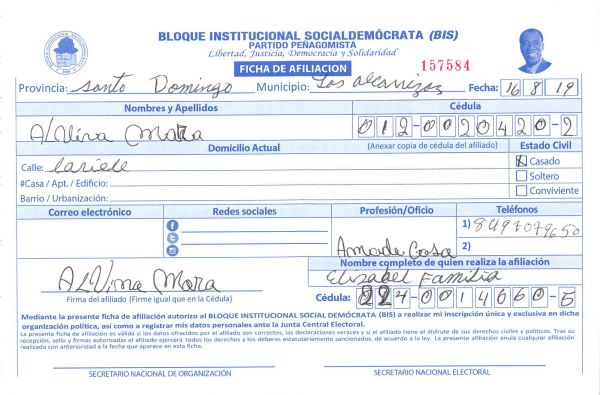 BLOQUE INSTITUCIONAL SOCIALDEMÓCRATA (BIS)
PARTIDO PEÑAGOMISTA
Libertad, Justicia, Democracia y Solidaridad
FICHA DE AFILIACION 157584
Provincia: Santo Domingo Municipio: Los alcarrizos Fecha: 16 8 19
Nombres y Apellidos Cédula
ALVira Mara 012-0020420-2
Domicilio Actual (Anexar copia de cédula del afiliado) Estado Civil
Calle: Casado
#Casa / Apt. / Edificio: Soltero
Barrio / Urbanización: Conviviente
Correo electrónico Redes sociales Profesión/Oficio Teléfonos
1) 
2)
Ama de Casa
Nombre completo de quien realiza la afiliación
ALVira Mara Elizabel Familia
Firma del afiliado (Firme igual que en la Cédula) Cédula: 224-0014660-5
Mediante la presente ficha de afiliación autorizo al BLOQUE INSTITUCIONAL SOCIAL DEMÓCRATA (BIS) a realizar mi inscripción única y exclusiva en dicha
organización política, así como a registrar mis datos personales ante la Junta Central Electoral.
La presente ficha de afiliación es válida si los datos ofrecidos por el afiliado son correctos, las declaraciones veraces y si el afiliado tiene el disfrute de sus derechos civiles y políticos. Tras su
recepción, sello y firmas autorizadas el afiliado ejercerá todos los derechos y los deberes estatutariamente sancionados, de acuerdo a la ley. La presente afiliación anula cualquier afiliación
realizada con anterioridad a la fecha que aparece en esta ficha.
SECRETARIO NACIONAL DE ORGANIZACIÓN SECRETARIO NACIONAL ELECTORAL